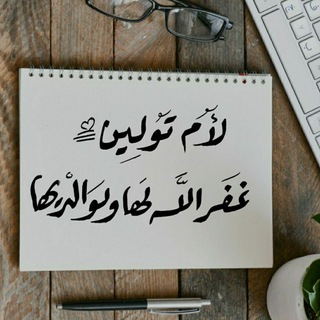 لأم تَوْلِين
غفَر اللّه لها ولوَالدْيها